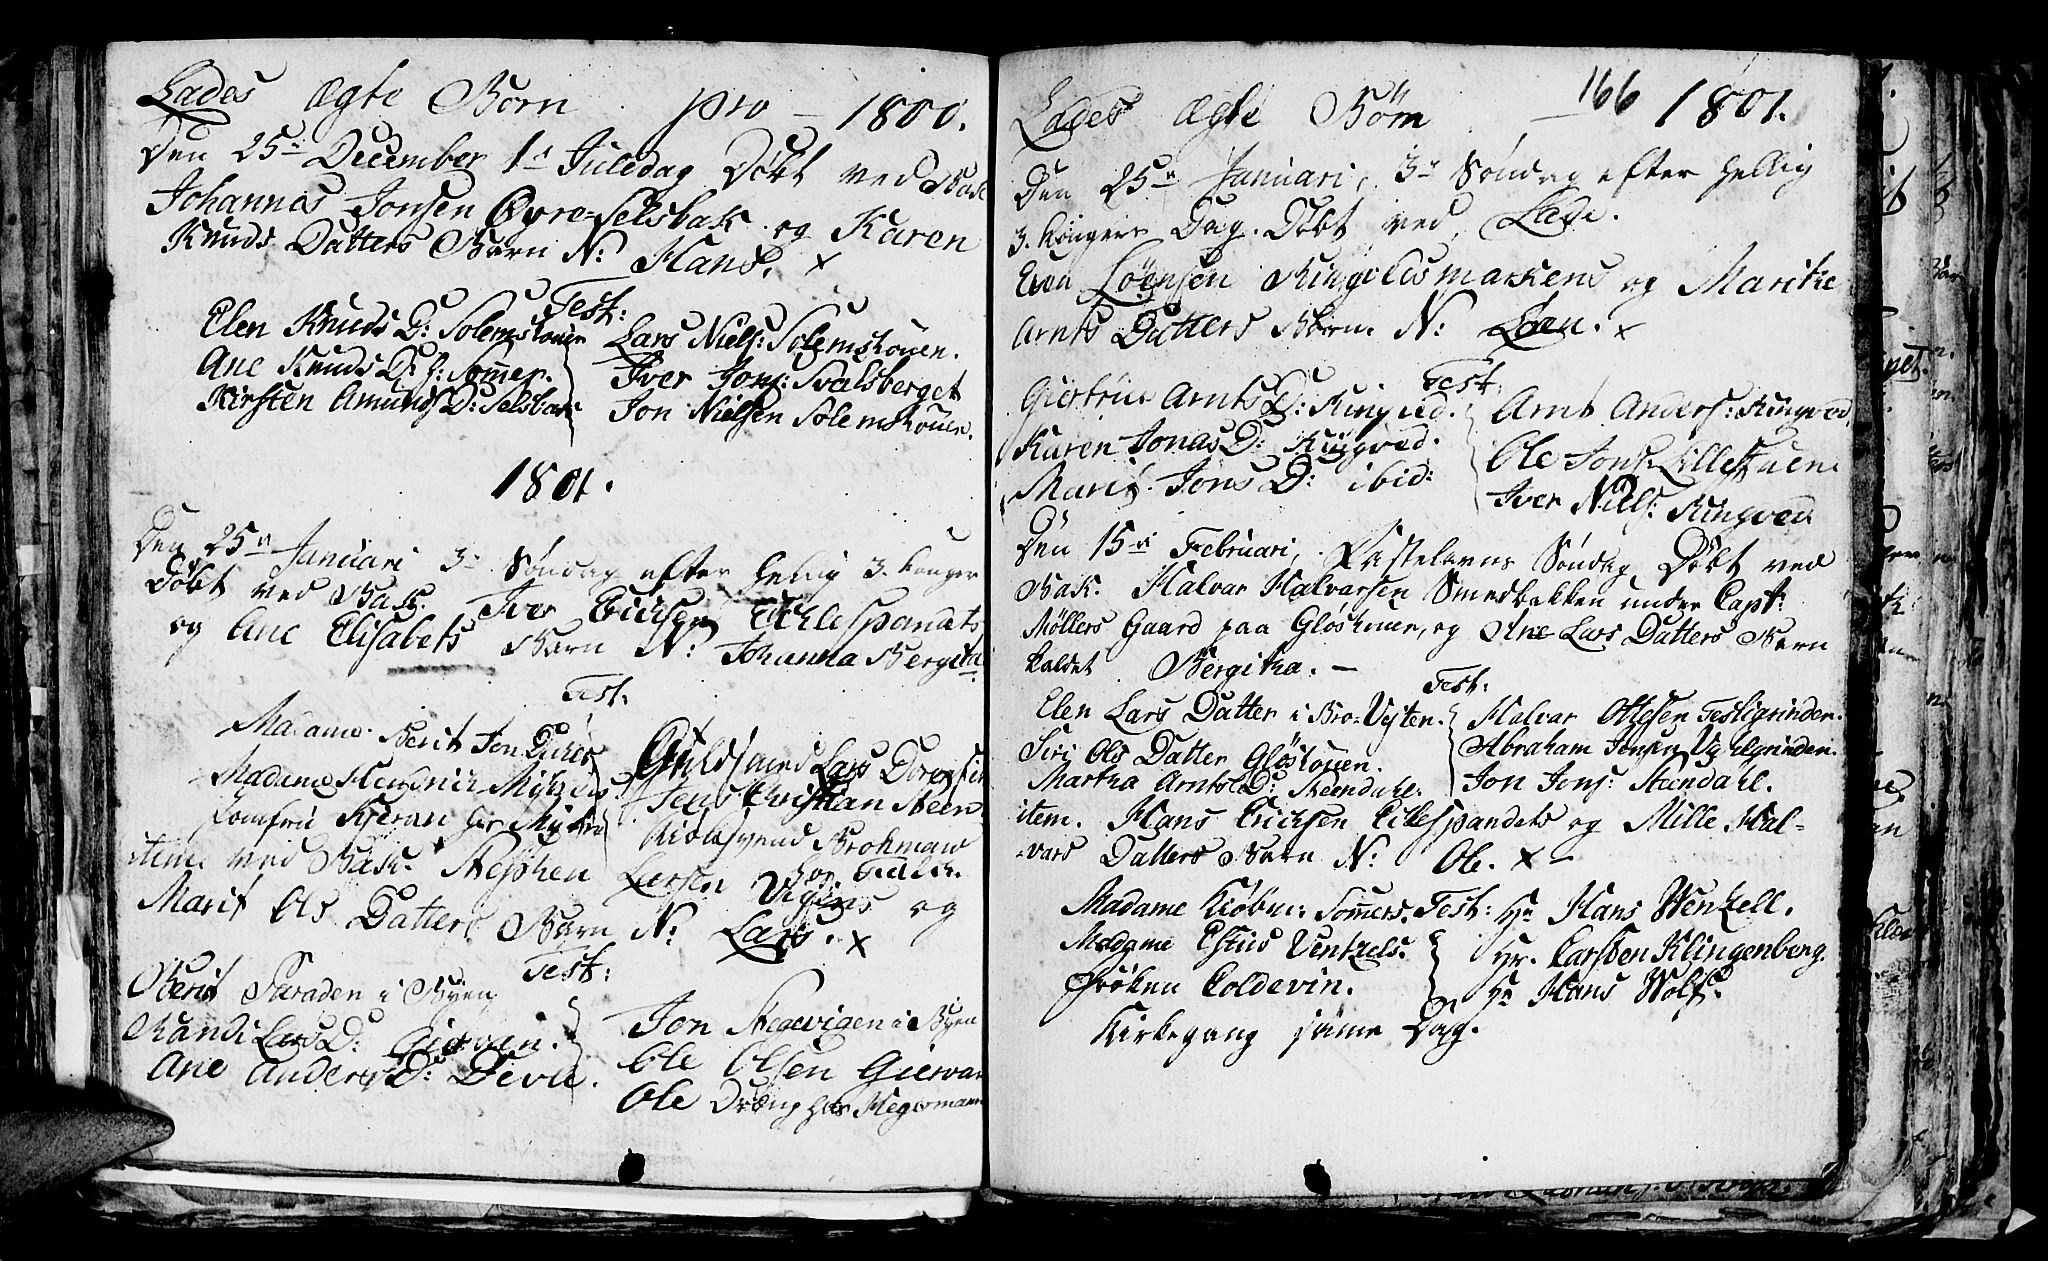 Lades Ægte Børn pro — 1800.
Den 25de December 1ste Juledag Døbt ved Bak
Johannes Jonsen Øvre-Selsbak og Karen
Knuds Datters Barn N: Hans. x
Test:
Elen Knuds D: Solemskouen
Ane Knuds D: h: Sommer.
Kirsten Amunds D: Selsbak
Lars Niels: Solemskouen.
Iver Jons: Svalsberget
Jon Nielsen Solemskouen.
1801.
Den 25de Januari 3de Søndag efter hellig 3. konger
Døbt ved Bak. Iver Erichsen Ekle
og Ane Elisabets Barn N: Johanna Bergitta
Test:
Madame Berit Jon
Madame Hendrich
Jomfru
Guldsmed Lars
Jens Christian Steen
Brohman
item ved Bak. Stephen Larsen og
Marit Ols Datters Barn N: Lars. x
Test:
Berit i Byen
Randi Lars D:
Ane Anders D: Devle.
Jon Stegevigen i Byen
Ole Olsen
Ole Dræng hos Hegermann
166
Lades Ægte Børn — 1801.
Den 25de Januari, 3de Søndag efter hellig
3. Kongers Dag. Døbt ved Lade.
Even Loensen Ringvedsmarkens og Maritke
Arnts Datters Barn N: Loen. x
Test:
Giertrue Arnts D: Ringved.
Karen Jonas D: Ringved.
Marit Jons D: ibid:
Arnt Anders: Ringved.
Ole Jons: Lillestuen.
Iver Niels: Ringved
Den 15de Februari, Fastelavns Søndag Døbt ved
Bak. Halvar Halvarsen Smedbakken under Capt:
Møllers Gaard paa Gløskouen, og Ane Lars Datters Barn
kaldet Bergitha. —
Test:
Elen Lars Datter i Bro-Vejten.
Siri Ols Datter Gløskouen.
Martha Arnts D: Steendahl.
Halvar Ottesen Festigrinden.
Abraham Jensen
Jon Jons: Steendahl.
item. Hans Erichsen og Mille Hal-
-vars Datters Barn N: Ole. x
Madame Kiøbm: Sommers. Test: Hr Hans Wenzell.
Madame Ventzels.
Frøken Coldevin.
Hr. Carsten Klingenberg.
Hr Hans Wolf.
Kirkegang samme Dag.